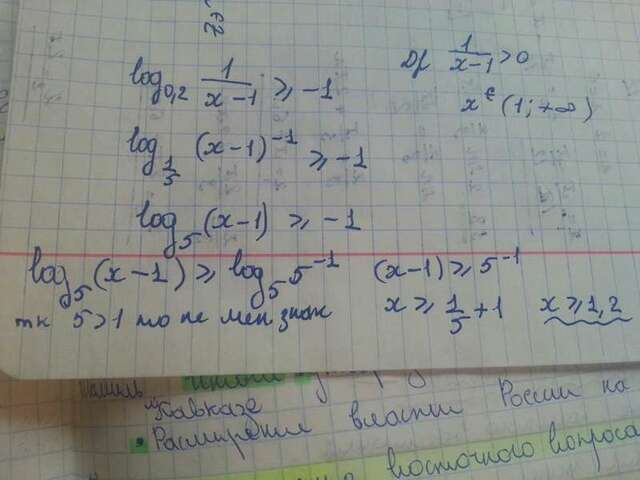 log_{0,2} \frac{1}{x-1} ≥ -1
Df \frac{1}{x-1} > 0
x ∈ (1; +∞)
log_{\frac{1}{5}} (x-1)^{-1} ≥ -1
log_5 (x-1) ≥ -1
log_5 (x-1) ≥ log_5 5^{-1} (x-1) ≥ 5^{-1}
тк 5>1 то не мен знак x ≥ \frac{1}{5} + 1 x ≥ 1,2
Кавказе
• Расширение власти России на
восточного вопроса